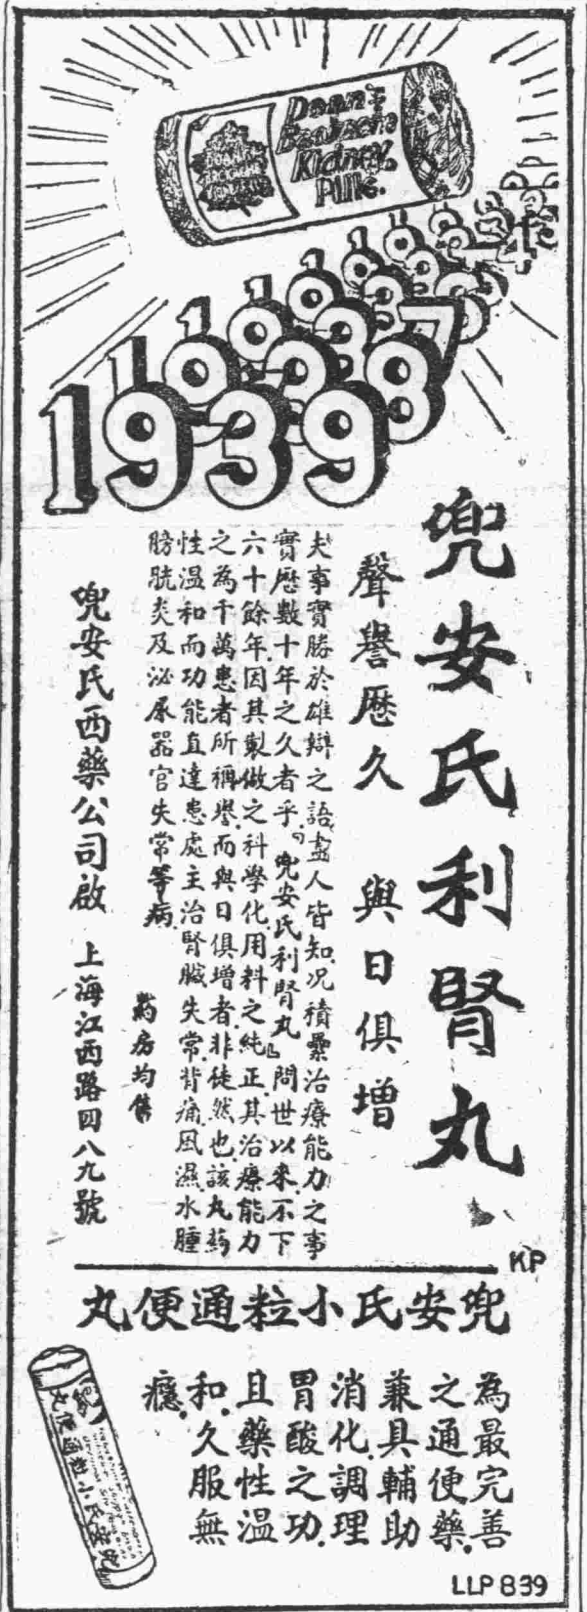 Doan's
Backache
Kidney
Pills.
1939
兜安氏利腎丸
聲譽歷久 與日俱增
夫事實勝於雄辯之語盡人皆知况積纍治療能力之事
實歷數十年之久者乎『兜安氏利腎丸』問世以來不下
六十餘年因其製做之科學化用料之純正其治療能力
之為千萬患者所稱譽而與日俱增者非徒然也該丸葯
性溫和而功能直達患處主治腎臟失常背痛風濕水腫
膀胱炎及泌尿器官失常等病
葯房均售
兜安氏西藥公司啟 上海江西路四八九號
KP
兜安氏小粒通便丸
為最完善
之通便藥
兼具輔助
消化調理
胃酸之功
且藥性溫
和久服無
癮
兜安氏小粒通便丸
LLP 839